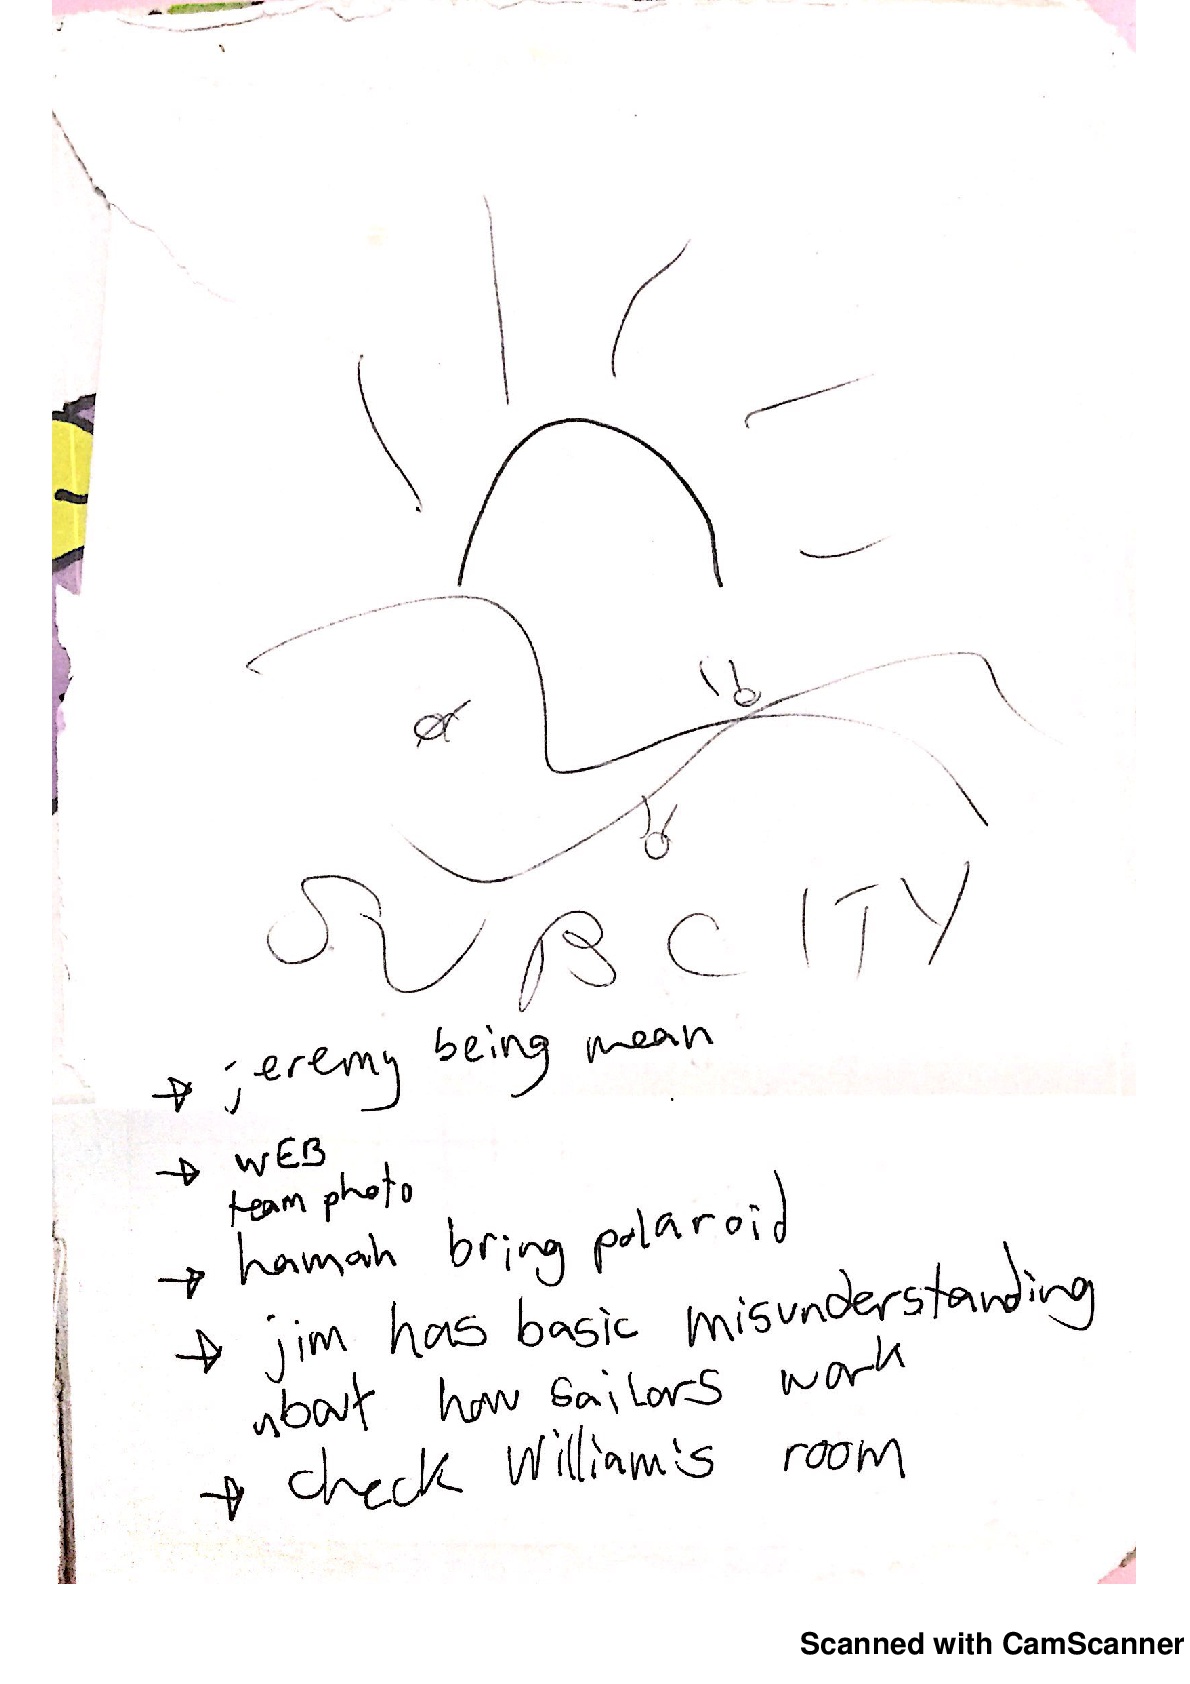 SUBCITY
→ jeremy being mean
→ WEB
team photo
→ hannah bring polaroid
→ jim has basic misunderstanding
about how sailors work
→ check William's room
Scanned with CamScanner